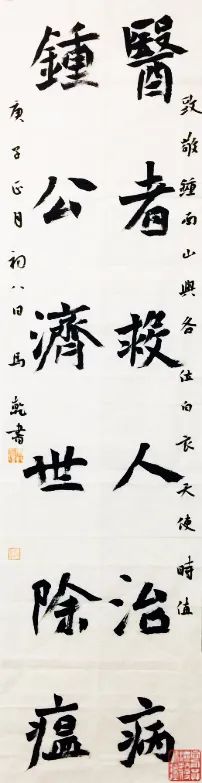 致敬鍾南山與各位白衣天使時值
醫者救人治病
鍾公濟世除瘟
庚子正月初八日馬乾書